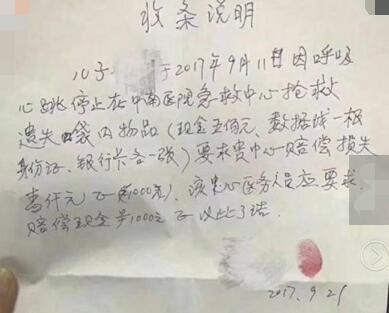 收条说明
儿子 于2017年9月11日因呼吸
心跳停止在中南医院急救中心抢救
遗失口袋内物品(现金五佰元、数据线一根
身份证、银行卡各一张)要求贵中心赔偿损失
壹仟元正(¥1000元)、该中心医务人员应要求
赔偿现金¥1000元正以此了结.
2017.9.25